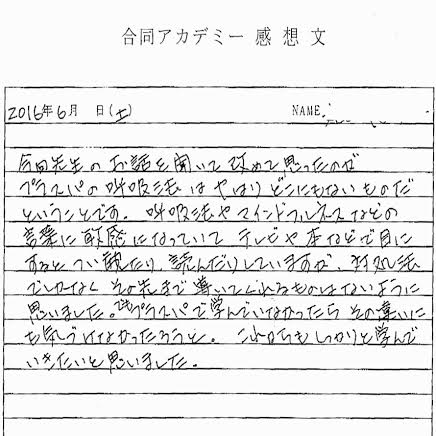 合同アカデミー 感想文
2016年6月 日(土) NAME.
今回先生のお話を聞いて改めて思ったのが
プラスパの呼吸法はやはりどこにもないものだ
ということです。呼吸法やマインドフルネスなどの
言葉に敏感になっていてテレビや本などで目に
するとつい観たり、読んだりしていますが、対処法
でしかなくその先まで導いてくれるものはないように
思いました。でもプラスパで学んでいなかったらその違いに
も気づけなかったろうと。これからもしっかりと学んで
いきたいと思いました。